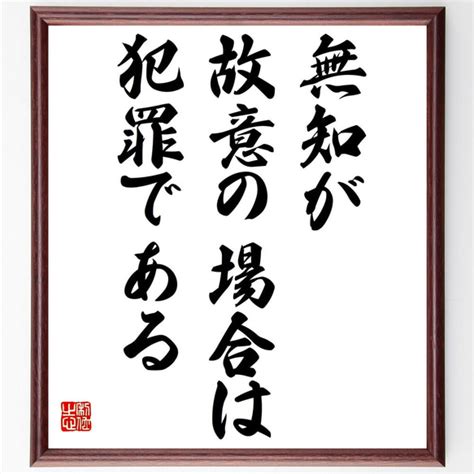 無知が
故意の場合は
犯罪である